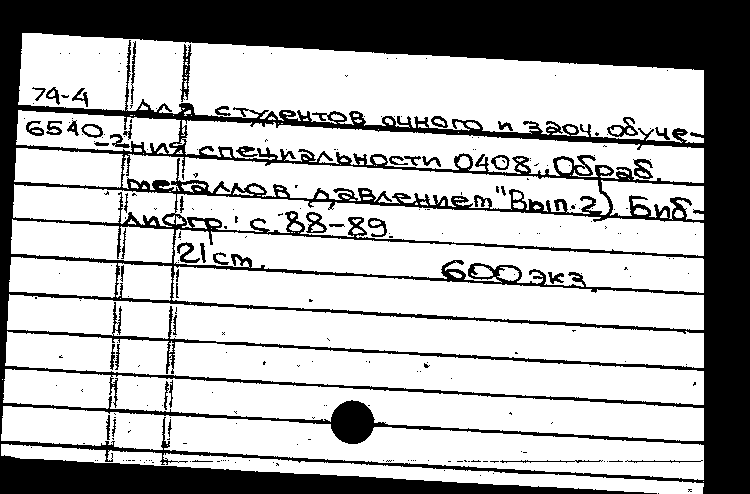 74-4 для студентов очного и заоч. обуче-
6540 -2- ния специальности 0408 „Обраб.
металлов давлением" Вып. 2). Биб-
лиогр.: с. 88-89.
21 ст.
600 экз.